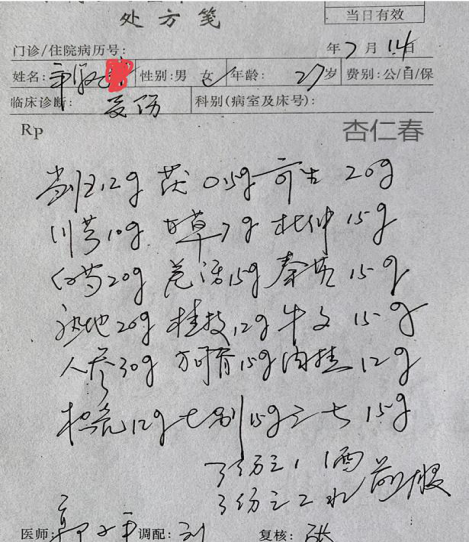 处方笺
当日有效
门诊/住院病历号: 年7月14日
姓名: 性别:男 女 年龄: 27岁 费别:公/自/保
临床诊断: 科别(病室及床号):
Rp
杏仁春
当归12g 茯 15g 寄生 20g
川芎10g 甘草7g 杜仲15g
白芍20g 15g 秦艽15g
熟地20g 桂枝12g 牛夕15g
人参30g 15g 肉桂12g
12g 七 15g 三七15g
3份之1酒
3份之2水 煎服
医师: 调配:刘 复核:张